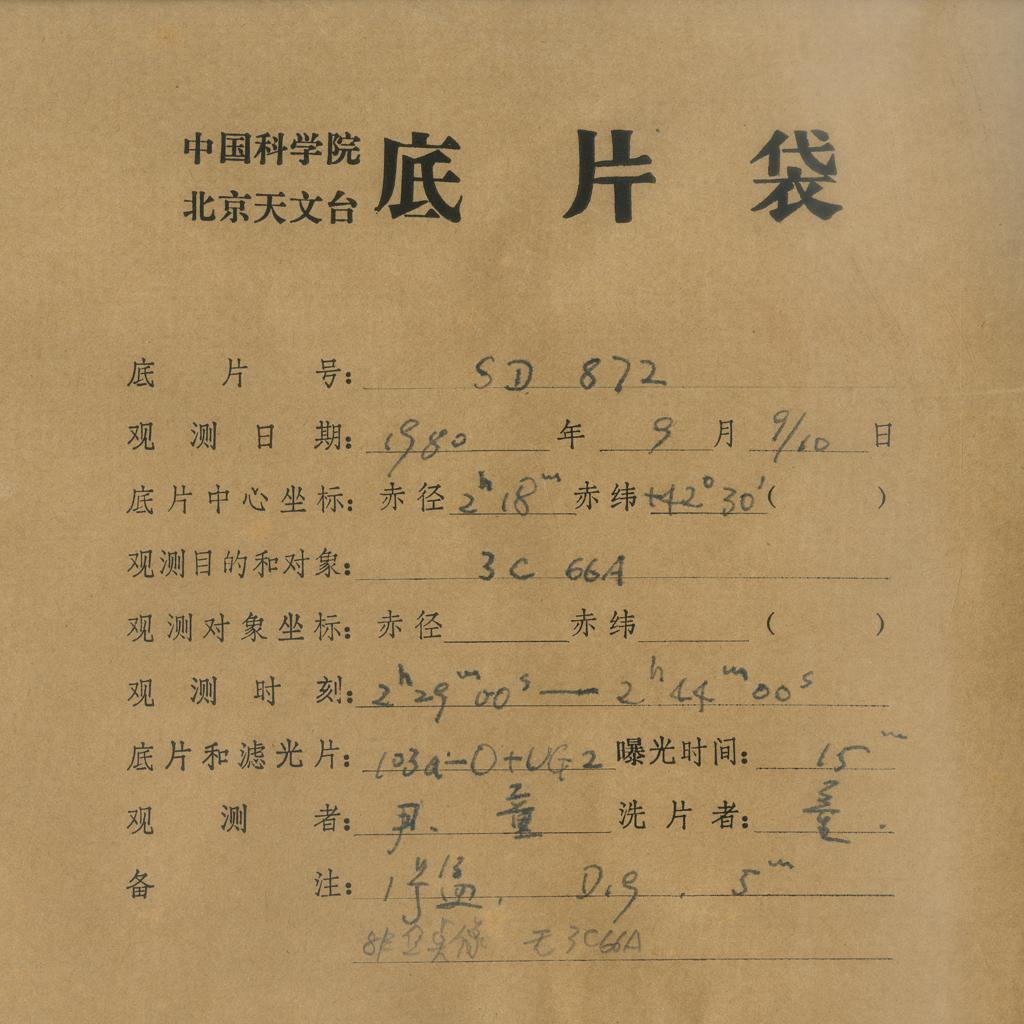 中国科学院
北京天文台 底片袋
底片号: SD 872
观测日期: 1980 年 9 月 9/10 日
底片中心坐标: 赤径 2h 18m 赤纬 +42° 30′ ( )
观测目的和对象: 3C 66A
观测对象坐标: 赤径 赤纬 ( )
观测时刻: 2h 29m 00s — 2h 44m 00s
底片和滤光片: 103a-O+UG2 曝光时间: 15m
观测者: 尹. 童 洗片者:
备注: 1号 D19. 5m
无3C66A